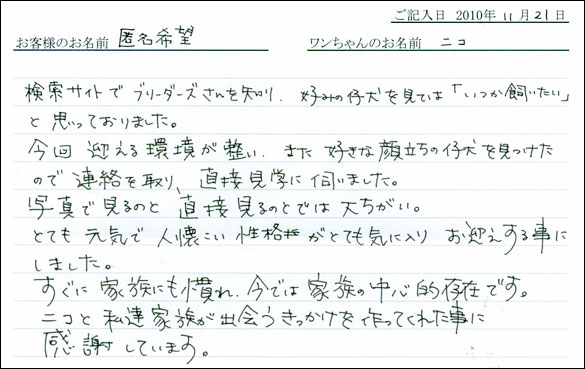 ご記入日 2010年 11月21日
お客様のお名前 匿名希望 ワンちゃんのお名前 ニコ
検索サイトで ブリーダーズさんを知り、好みの仔犬を見ては「いつか飼いたい」
と思っておりました。
今回 迎える環境が整い、また 好きな顔立ちの仔犬を見つけた
ので 連絡を取り、直接見学に伺いました。
写真で見るのと 直接見るのとでは 大ちがい。
とても 元気で 人懐こい 性格が とても気に入り お迎えする事に
しました。
すぐに 家族にも慣れ、今では 家族の中心的存在です。
ニコと 私達家族が 出会うきっかけを 作ってくれた事に
感謝しています。